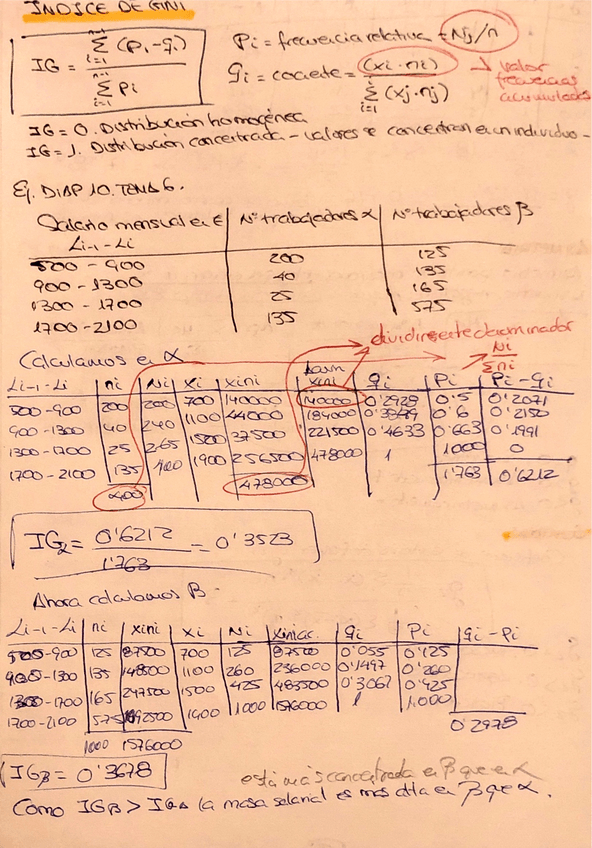 ÍNDICE DE GINI
IG = Σ i=1 n-1 (Pi - qi) / Σ i=1 n-1 Pi
Pi = frecuencia relativa = Nj/n
qi = cociente = (xi · ni) / Σ i=1 (xj · nj) → valor frecuencias acumuladas
IG = 0. Distribución homogénea
IG = 1. Distribución concentrada - valores se concentran en un individuo -
Ej. DIAP 10. TEMA 6.
Salario mensual en € | Nº trabajadores α | Nº trabajadores β
Li-1 - Li
500 - 900 | 200 | 125
900 - 1300 | 40 | 135
1300 - 1700 | 25 | 165
1700 - 2100 | 135 | 575
dividir este denominador
Calculamos en α
Ni/Σni
Li-1 - Li | ni | Ni | xi | xini | Acum xini | qi | Pi | Pi - qi
500 - 900 | 200 | 200 | 700 | 140000 | 140000 | 0'2928 | 0'5 | 0'2071
900 - 1300 | 40 | 240 | 1100 | 44000 | 184000 | 0'3849 | 0'6 | 0'2150
1300 - 1700 | 25 | 265 | 1500 | 37500 | 221500 | 0'4633 | 0'663 | 0'1991
1700 - 2100 | 135 | 400 | 1900 | 256500 | 478000 | 1 | 1000 | 0
400 | 478000 | 1'763 | 0'6212
IGα = 0'6212 / 1'763 = 0'3523
Ahora calculamos β.
Li-1 - Li | ni | xini | xi | Ni | xiniac. | qi | Pi | qi - Pi
500 - 900 | 125 | 87500 | 700 | 125 | 87500 | 0'055 | 0'125
900 - 1300 | 135 | 148500 | 1100 | 260 | 236000 | 0'1497 | 0'260
1300 - 1700 | 165 | 247500 | 1500 | 425 | 483500 | 0'3067 | 0'425
1700 - 2100 | 575 | 1092500 | 1900 | 1000 | 1576000 | 1 | 1.000
0'2978
1000 1576000
IGβ = 0'3678
está más concentrada en β que en α
Como IGβ > IGα la masa salarial es más alta en β que α.